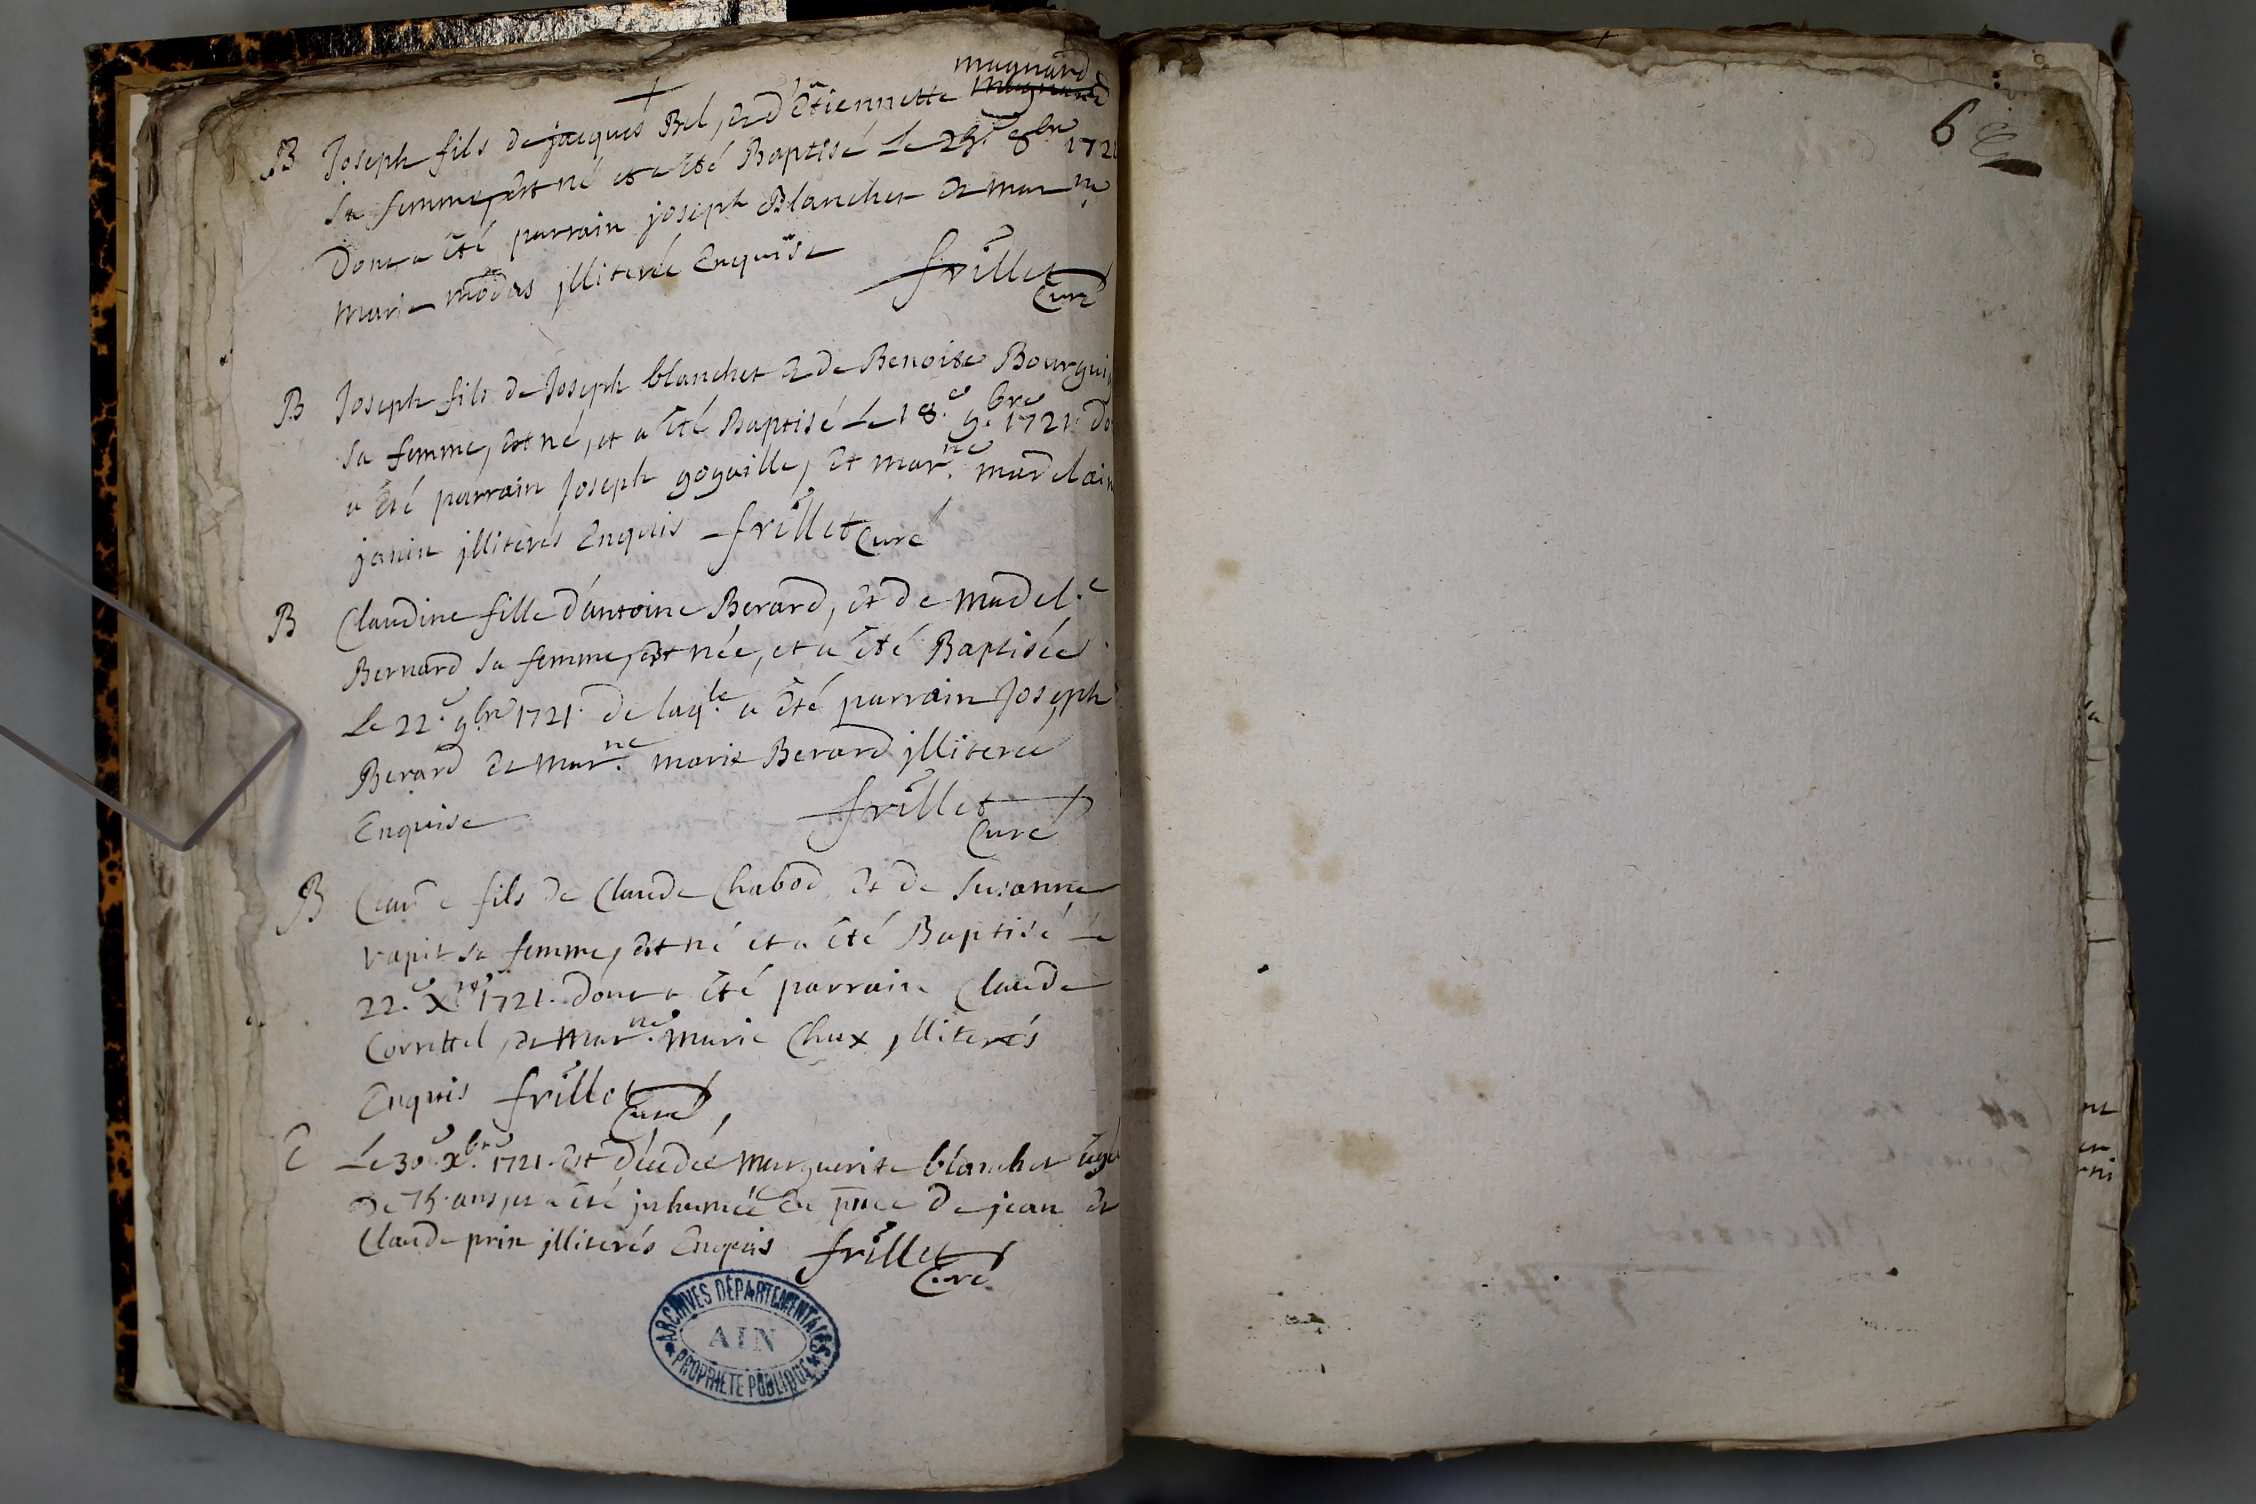 +
magnard
B Joseph fils de jacques Bel, et d'Etiennette
sa femme, est né et a été Baptisé le 8.bre 172
Dont a été parrain joseph Blanchet et mar.ne
Marie illiterée Enquise
frillet
Curé
B Joseph fils de Joseph blanchet & de Benoite Bourgui
sa femme, est né, et a été Baptisé Le 18.e 9.bre 1721. Do
a été parrain Joseph goyaille, et mar.ne madelain
janin illiterés Enquis frillet Curé
B Claudine fille d'antoine Berard, et de Madel.e
Bernard sa femme, est née, et a été Baptisée
Le 22.e 9.bre 1721. de laq.le a été parrain Joseph
Berard et mar.ne marie Berard illiterée
Enquise frillet
Curé
B Claude fils de Claude Chabod et de Susanne
vapit sa femme, est né et a été Baptisé Le
22.e X.bre 1721. dont a été parrain Claude
Correttel, et mar.ne Marie Chux illiterés
Enquis frillet
Curé
E Le 30.e X.bre 1721. est décédée Marguerite blanchet âgé
De 75 ans, et a été inhumée En pnce De jean et
Claude prin illiterés Enquis frillet
Curé
ARCHIVES DÉPARTEMENTALES
AIN
PROPRIÉTÉ PUBLIQUE
6